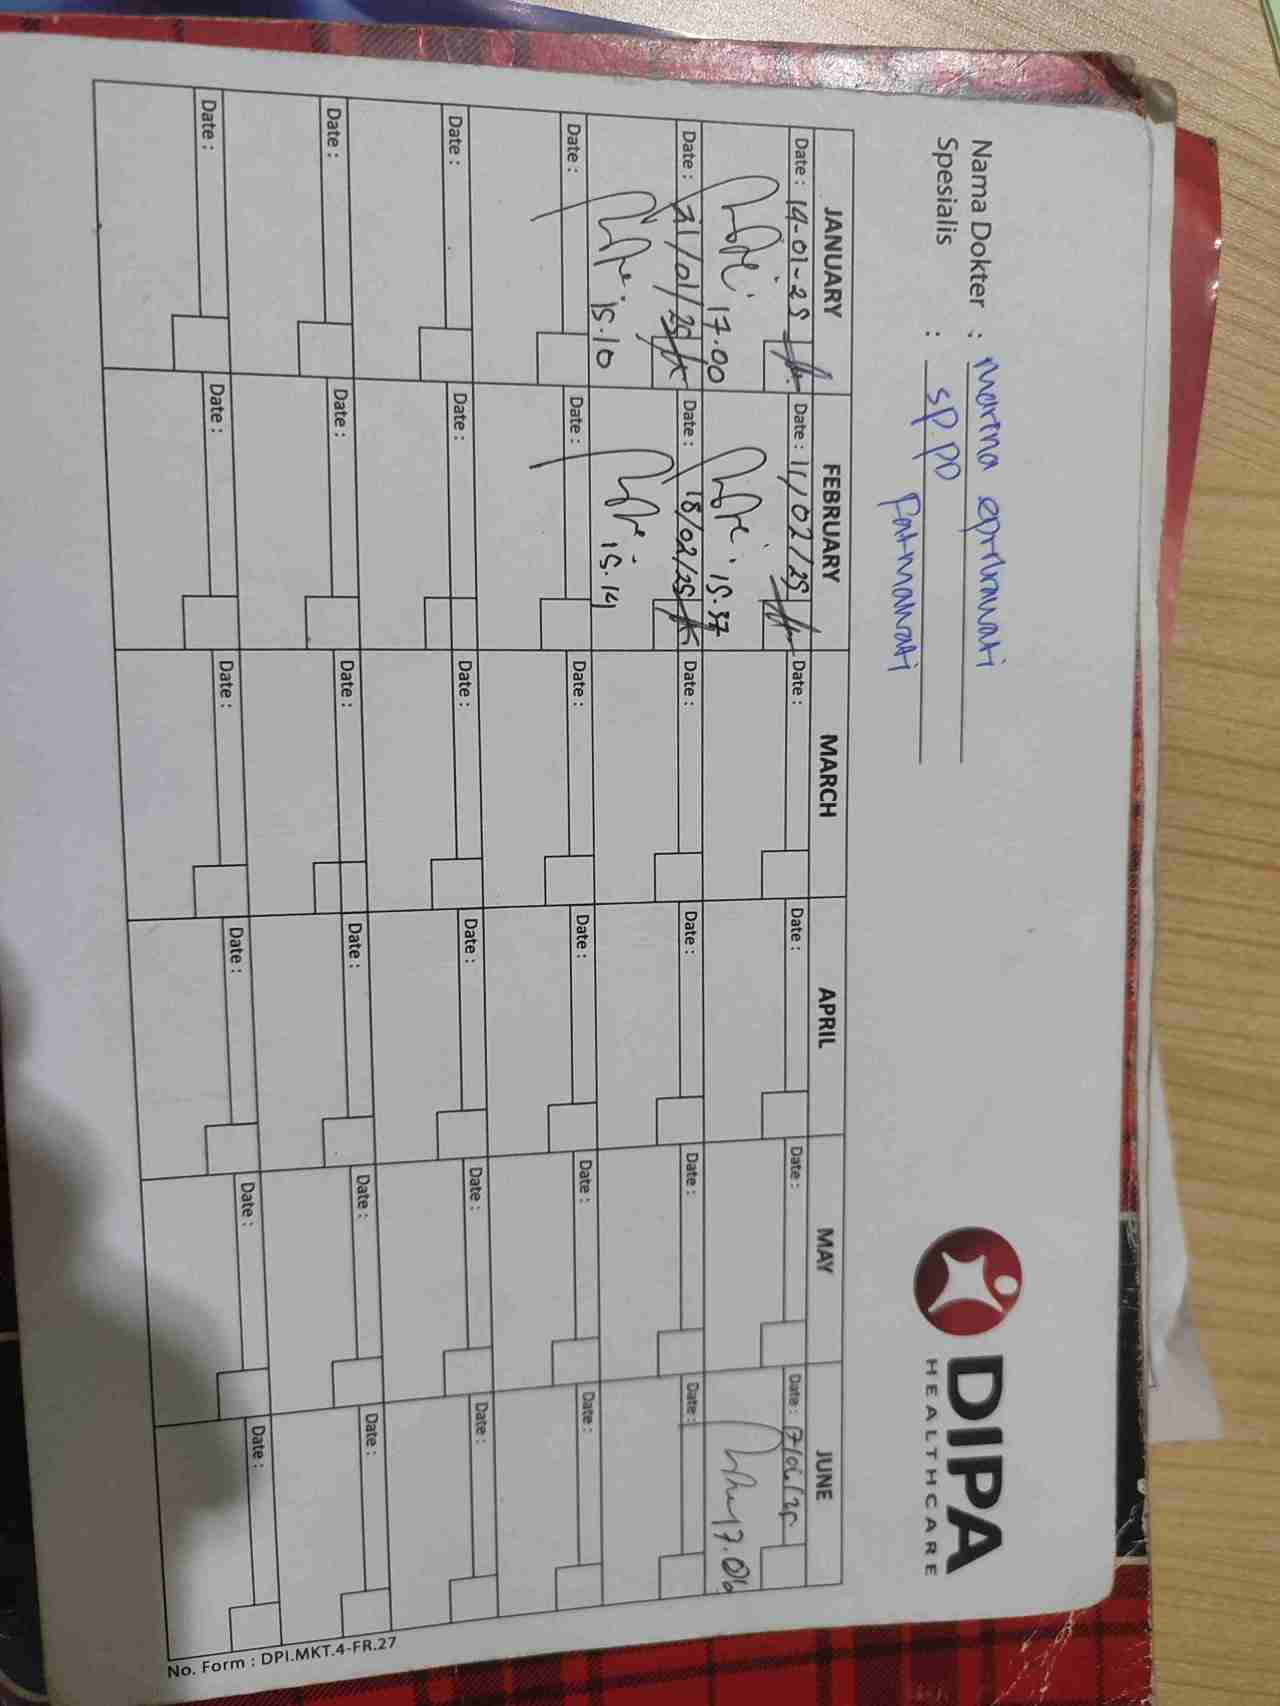 Nama Dokter :
Spesialis : SP.PD
Fatmawati
DIPA
HEALTHCARE
JANUARY FEBRUARY MARCH APRIL MAY JUNE
Date : 14-01-25 Date : 11/02/25 Date : Date : Date : Date :
17.00 15.37
Date : 21/01/25 Date : 18/02/25 Date : Date : Date : Date :
15.10 15.14
Date : Date : Date : Date : Date : Date :
Date : Date : Date : Date : Date : Date :
Date : Date : Date : Date : Date : Date :
Date : Date : Date : Date : Date : Date :
No. Form : DPI.MKT.4-FR.27